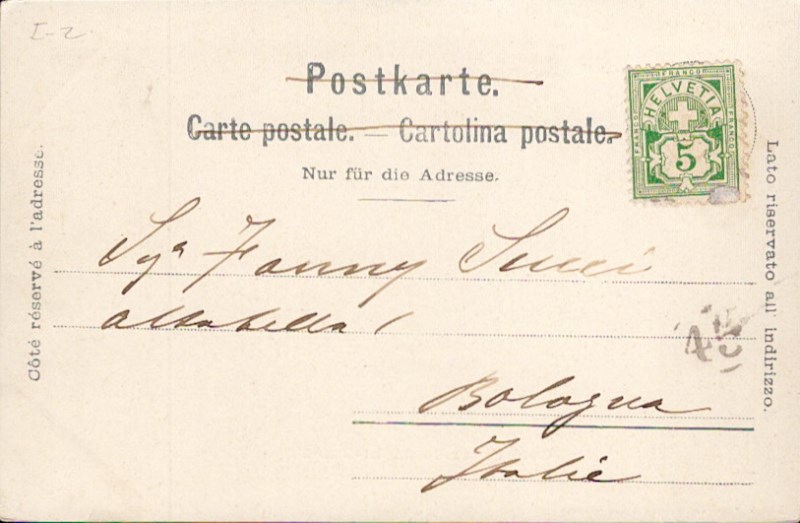 I-2
Postkarte.
Carte postale. — Cartolina postale.
Nur für die Adresse.
FRANCO
HELVETIA
FRANCO
FRANCO
5
Côté réservé à l'adresse.
Lato riservato all' indirizzo.
Sgª Fanny Succi
Altabella
Bologna
Italie